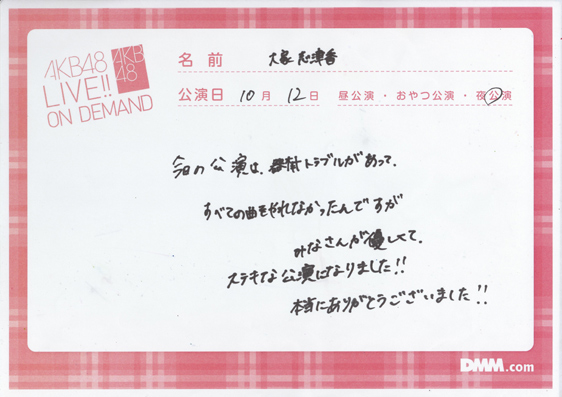 AKB48
LIVE!!
ON DEMAND
AKB
48
名前 大家志津香
公演日 10月 12日 昼公演・おやつ公演・夜公演
今日の公演は、トラブルがあって、
すべての曲をやれなかったんですが
みなさんが優しくて、
ステキな公演になりました!!
本当にありがとうございました!!
DMM.com